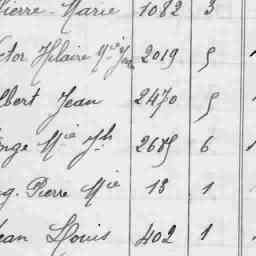 Pierre-Marie 1082 3
ctor Hilaire Mie Jean 2019 5
lbert Jean 2470 5
ange Mie Jh 2685 6
ug. Pierre Mie 13 1
ean Louis 402 1